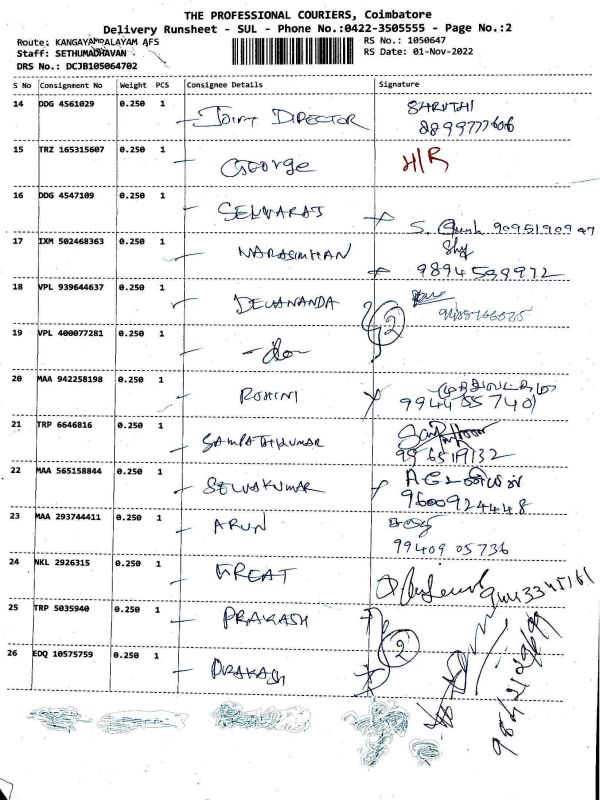 THE PROFESSIONAL COURIERS, Coimbatore
Delivery Runsheet - SUL - Phone No.:0422-3505555 - Page No.:2
Route: KANGAYAMPALAYAM AFS
RS No.: 1050647
Staff: SETHUMADHAVAN
RS Date: 01-Nov-2022
DRS No.: DCJB105064702
S No Consignment No Weight PCS Consignee Details Signature
14 DDG 4561029 0.250 1 JOINT DIRECTOR SHRUTHI
8899777606
15 TRZ 165315607 0.250 1 George H/R
16 DDG 4547109 0.250 1 SELVARAJ
S. 9095190947
17 IXM 502468363 0.250 1 NARASIMHAN
9894598972
18 VPL 939644637 0.250 1 DEVANANDA 2
19 VPL 400077281 0.250 1 -do-
20 MAA 942258198 0.250 1 ROHINI
9944055740
21 TRP 6646816 0.250 1 SAMPATHKUMAR
9965119132
22 MAA 565158844 0.250 1 SELVAKUMAR
9600924448
23 MAA 293744411 0.250 1 ARUN
99409 05736
24 NKL 2926315 0.250 1 GREAT
25 TRP 5035940 0.250 1 PRAKASH
2
26 EDQ 10575759 0.250 1 PRAKASH